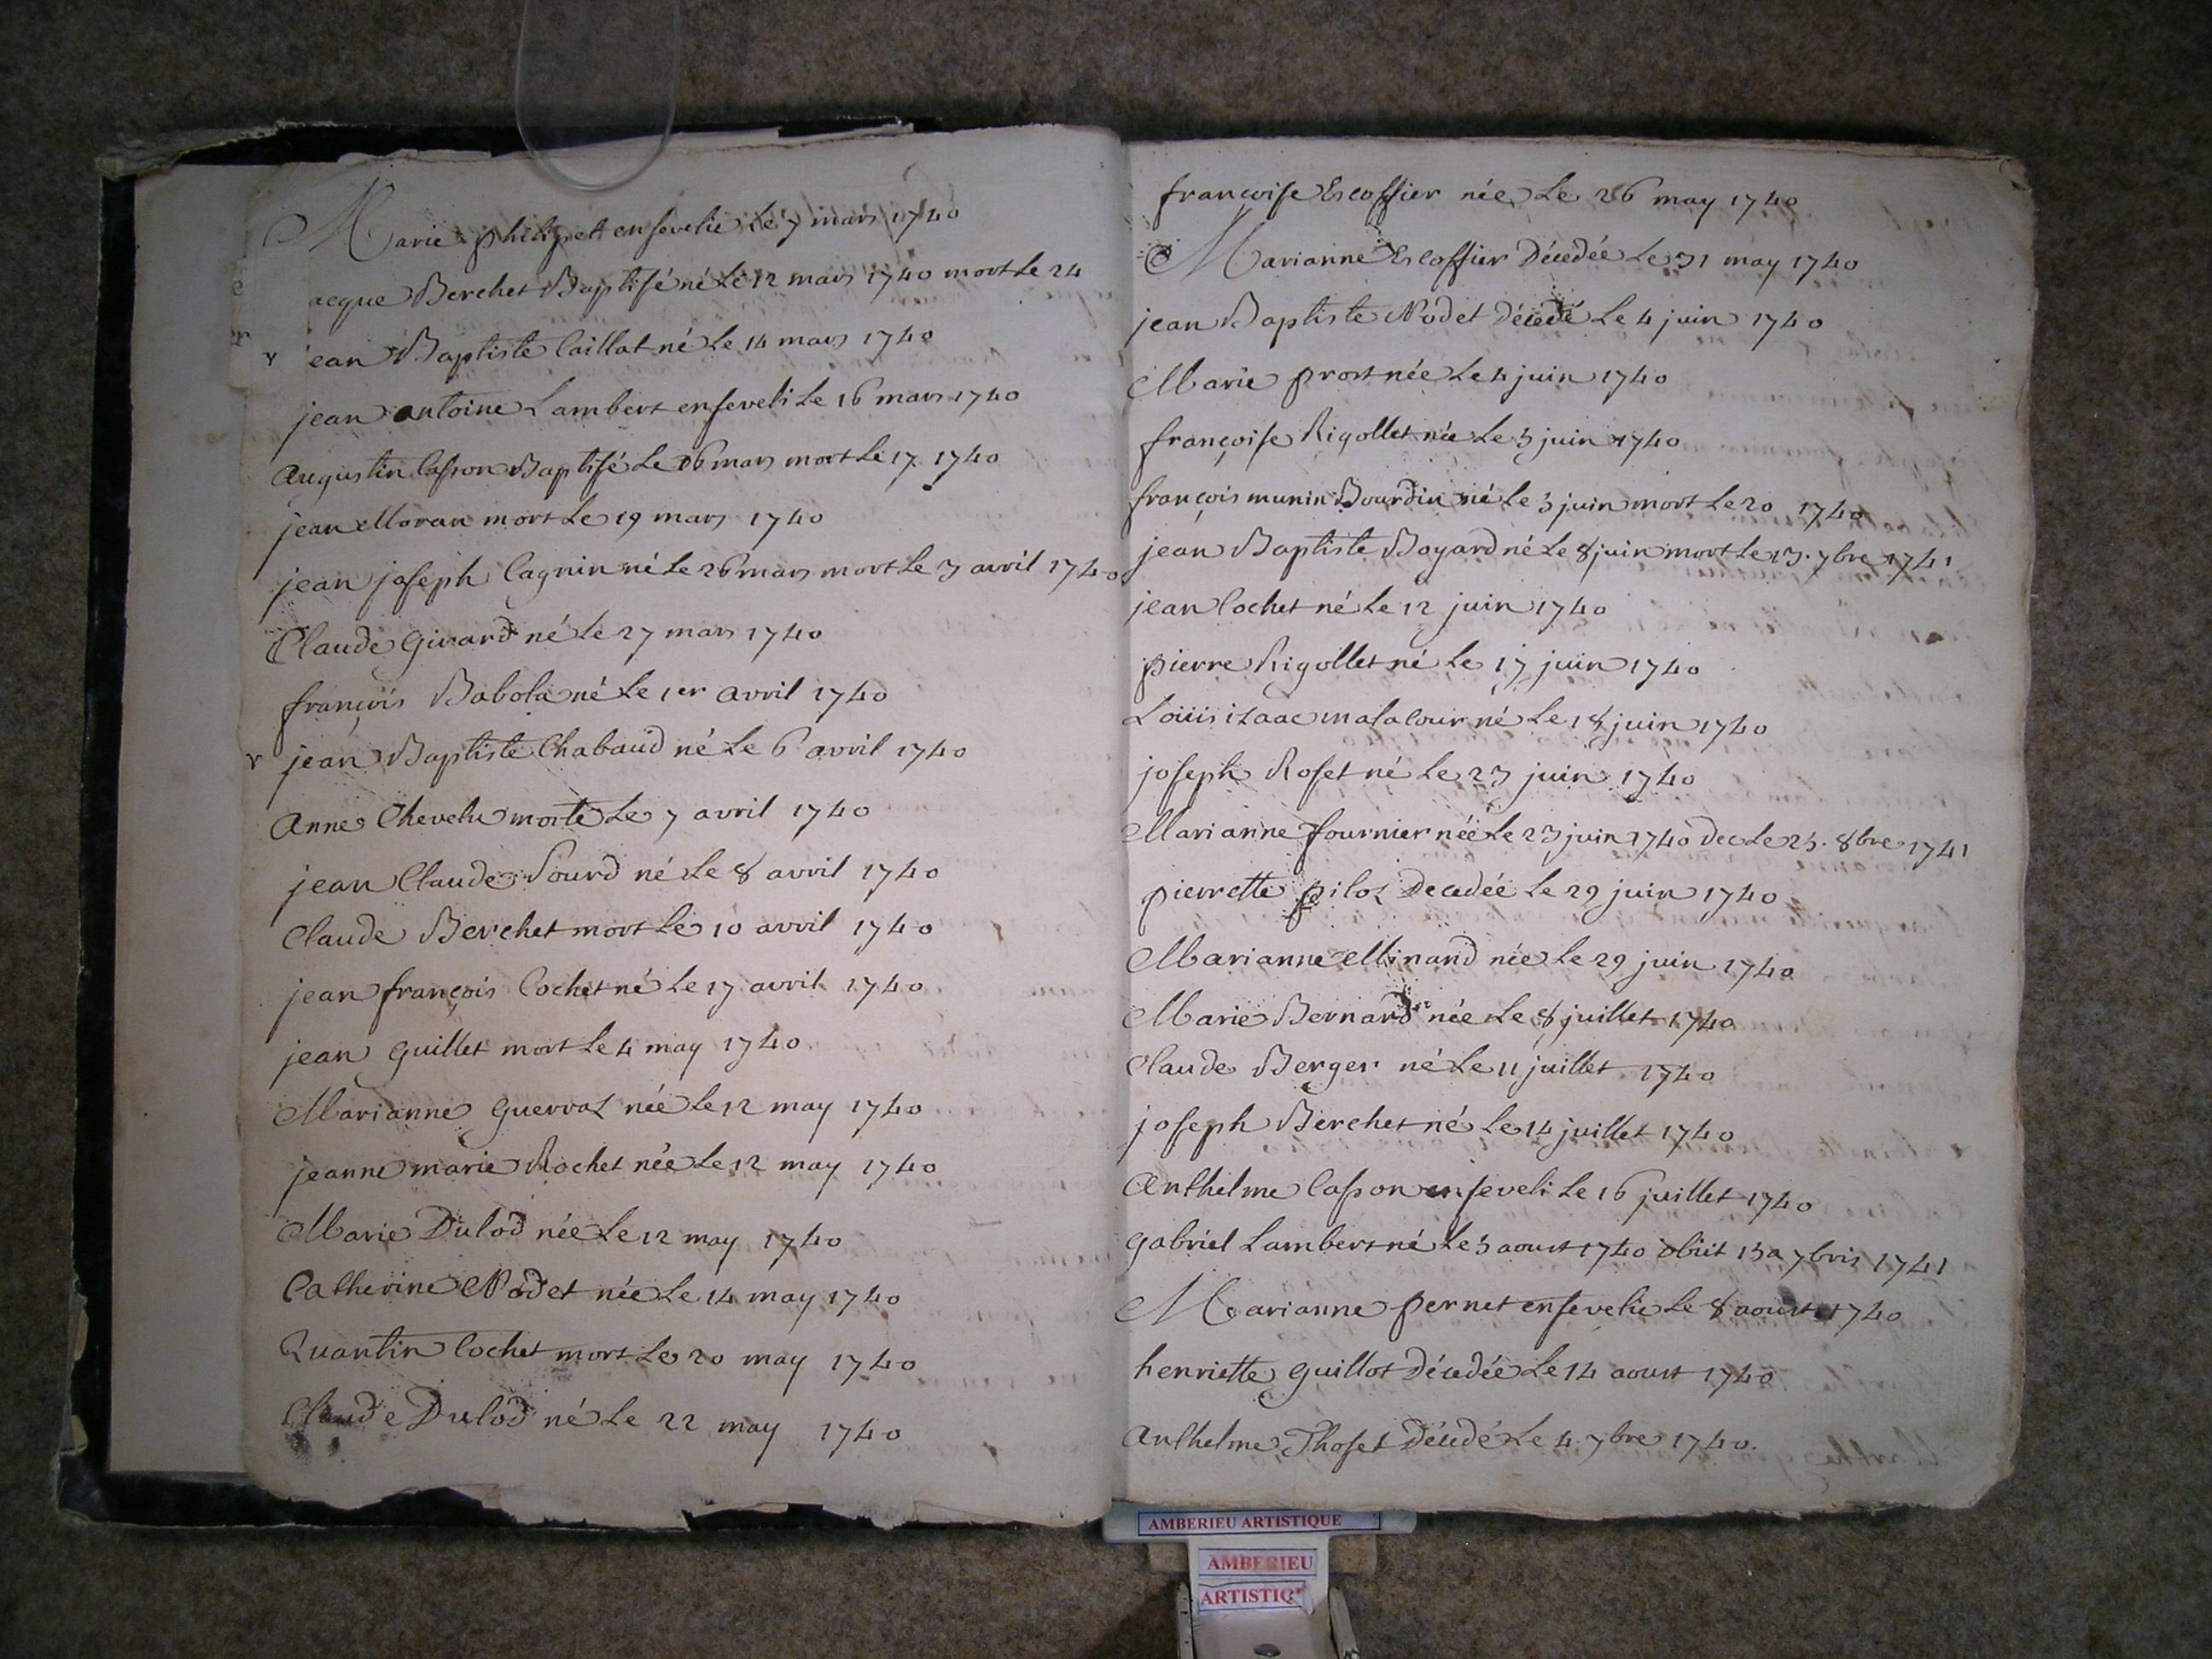 Marie philipet ensevelie Le 7 mars 1740
acque Berchet Baptisé né Le 12 mars 1740 mort Le 24
ean Baptiste Caillat né Le 14 mars 1740
jean antoine Lambert enseveli Le 16 mars 1740
augustin Casson Baptisé Le 16 mars mort Le 17 1740
jean Moran mort Le 19 mars 1740
jean joseph Cagnin né Le 26 mars mort Le 3 avril 1740
Claude Girard né Le 27 mars 1740
françois Babola né Le 1er avril 1740
jean Baptiste Chabaud né Le 6 avril 1740
Anne Chevelu morte Le 7 avril 1740
jean Claude Sourd né Le 8 avril 1740
Claude Berchet mort Le 10 avril 1740
jean françois Cochet né Le 17 avril 1740
jean Guillet mort Le 4 may 1740
Marianne Guerrat née Le 12 may 1740
jeanne marie Rochet née Le 12 may 1740
Marie Dulod née Le 12 may 1740
Catherine Nodet née Le 14 may 1740
Quantin Cochet mort Le 20 may 1740
Claude Dulod né Le 22 may 1740
françoise Escoffier née Le 26 may 1740
Marianne Escoffier Décédée Le 31 may 1740
jean Baptiste Nodet Décedé Le 4 juin 1740
Marie prost née Le 4 juin 1740
françoise Rigollet née Le 5 juin 1740
françois munin Bourdin né Le 5 juin mort Le 20 1740
jean Baptiste Bayard né Le 8 juin mort Le 13. 7bre 1741
jean Cochet né Le 12 juin 1740
pierre Rigollet né Le 17 juin 1740
Loüis izaac malacour né Le 18 juin 1740
joseph Roset né Le 23 juin 1740
Marianne fournier née Le 23 juin 1740 dec Le 25. 8bre 1741
pierrette pilot Decedée Le 29 juin 1740
Marianne Minand née Le 29 juin 1740
Marie Bernard née Le 8 juillet 1740
Claude Berger né Le 11 juillet 1740
joseph Berchet né Le 14 juillet 1740
Anthelme Casson enseveli Le 16 juillet 1740
gabriel Lambert né Le 5 aoust 1740 obiit 15a 7bris 1741
Marianne pernet ensevelie Le 8 aoust 1740
henriette guillot Décedée Le 14 aoust 1740
Anthelme Thoset Décedé Le 4. 7bre 1740.
AMBERIEU ARTISTIQUE
AMBERIEU
ARTISTIQ